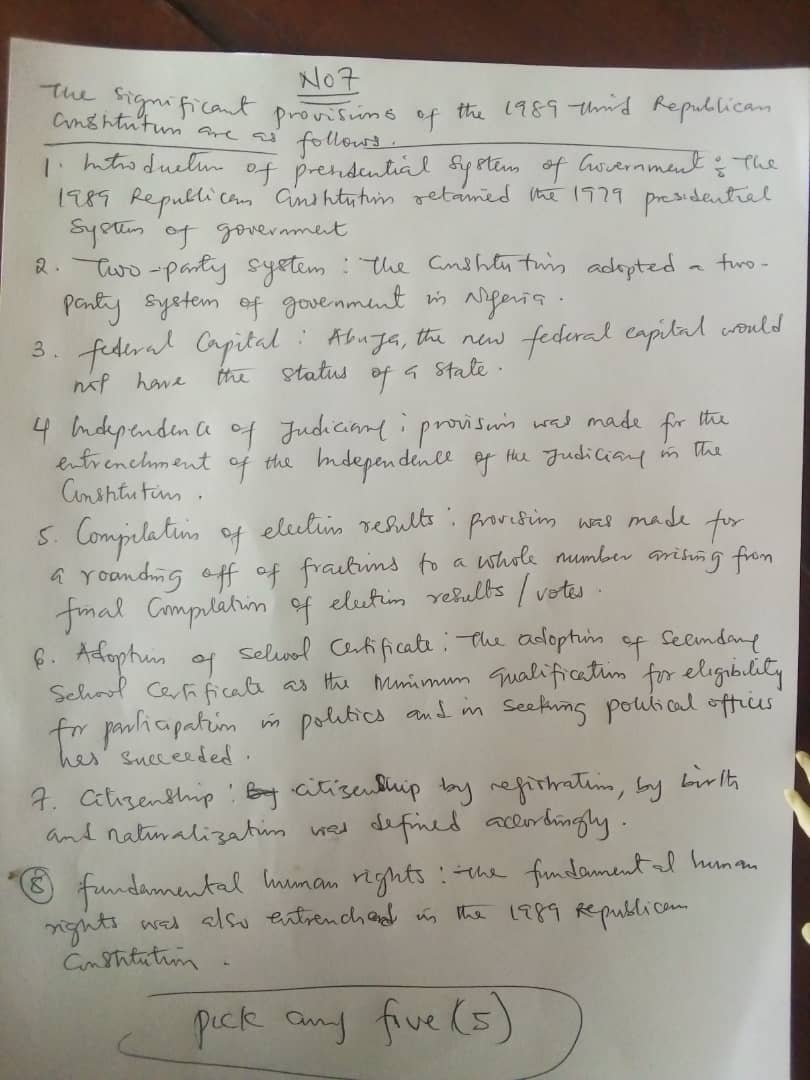 No7
The significant provisions of the 1989 third Republican
Constitution are as follows.
1. Introduction of presidential system of Government : The
1989 Republican Constitution retained the 1979 presidential
system of government
2. Two-party system : The Constitution adopted a two-
party system of government in Nigeria.
3. federal Capital : Abuja, the new federal capital would
not have the status of a state.
4 Independence of Judiciary : provision was made for the
entrenchment of the Independence of the Judiciary in the
Constitution.
5. Compilation of election results : provision was made for
a rounding off of fractions to a whole number arising from
final Compilation of election results / votes.
6. Adoption of school Certificate : The adoption of Secondary
School Certificate as the minimum qualification for eligibility
for participation in politics and in seeking political offices
has succeeded.
7. Citizenship : By citizenship by registration, by birth
and naturalization was defined accordingly.
8 fundamental human rights : The fundamental human
rights was also entrenched in the 1989 Republican
Constitution.
pick any five (5)